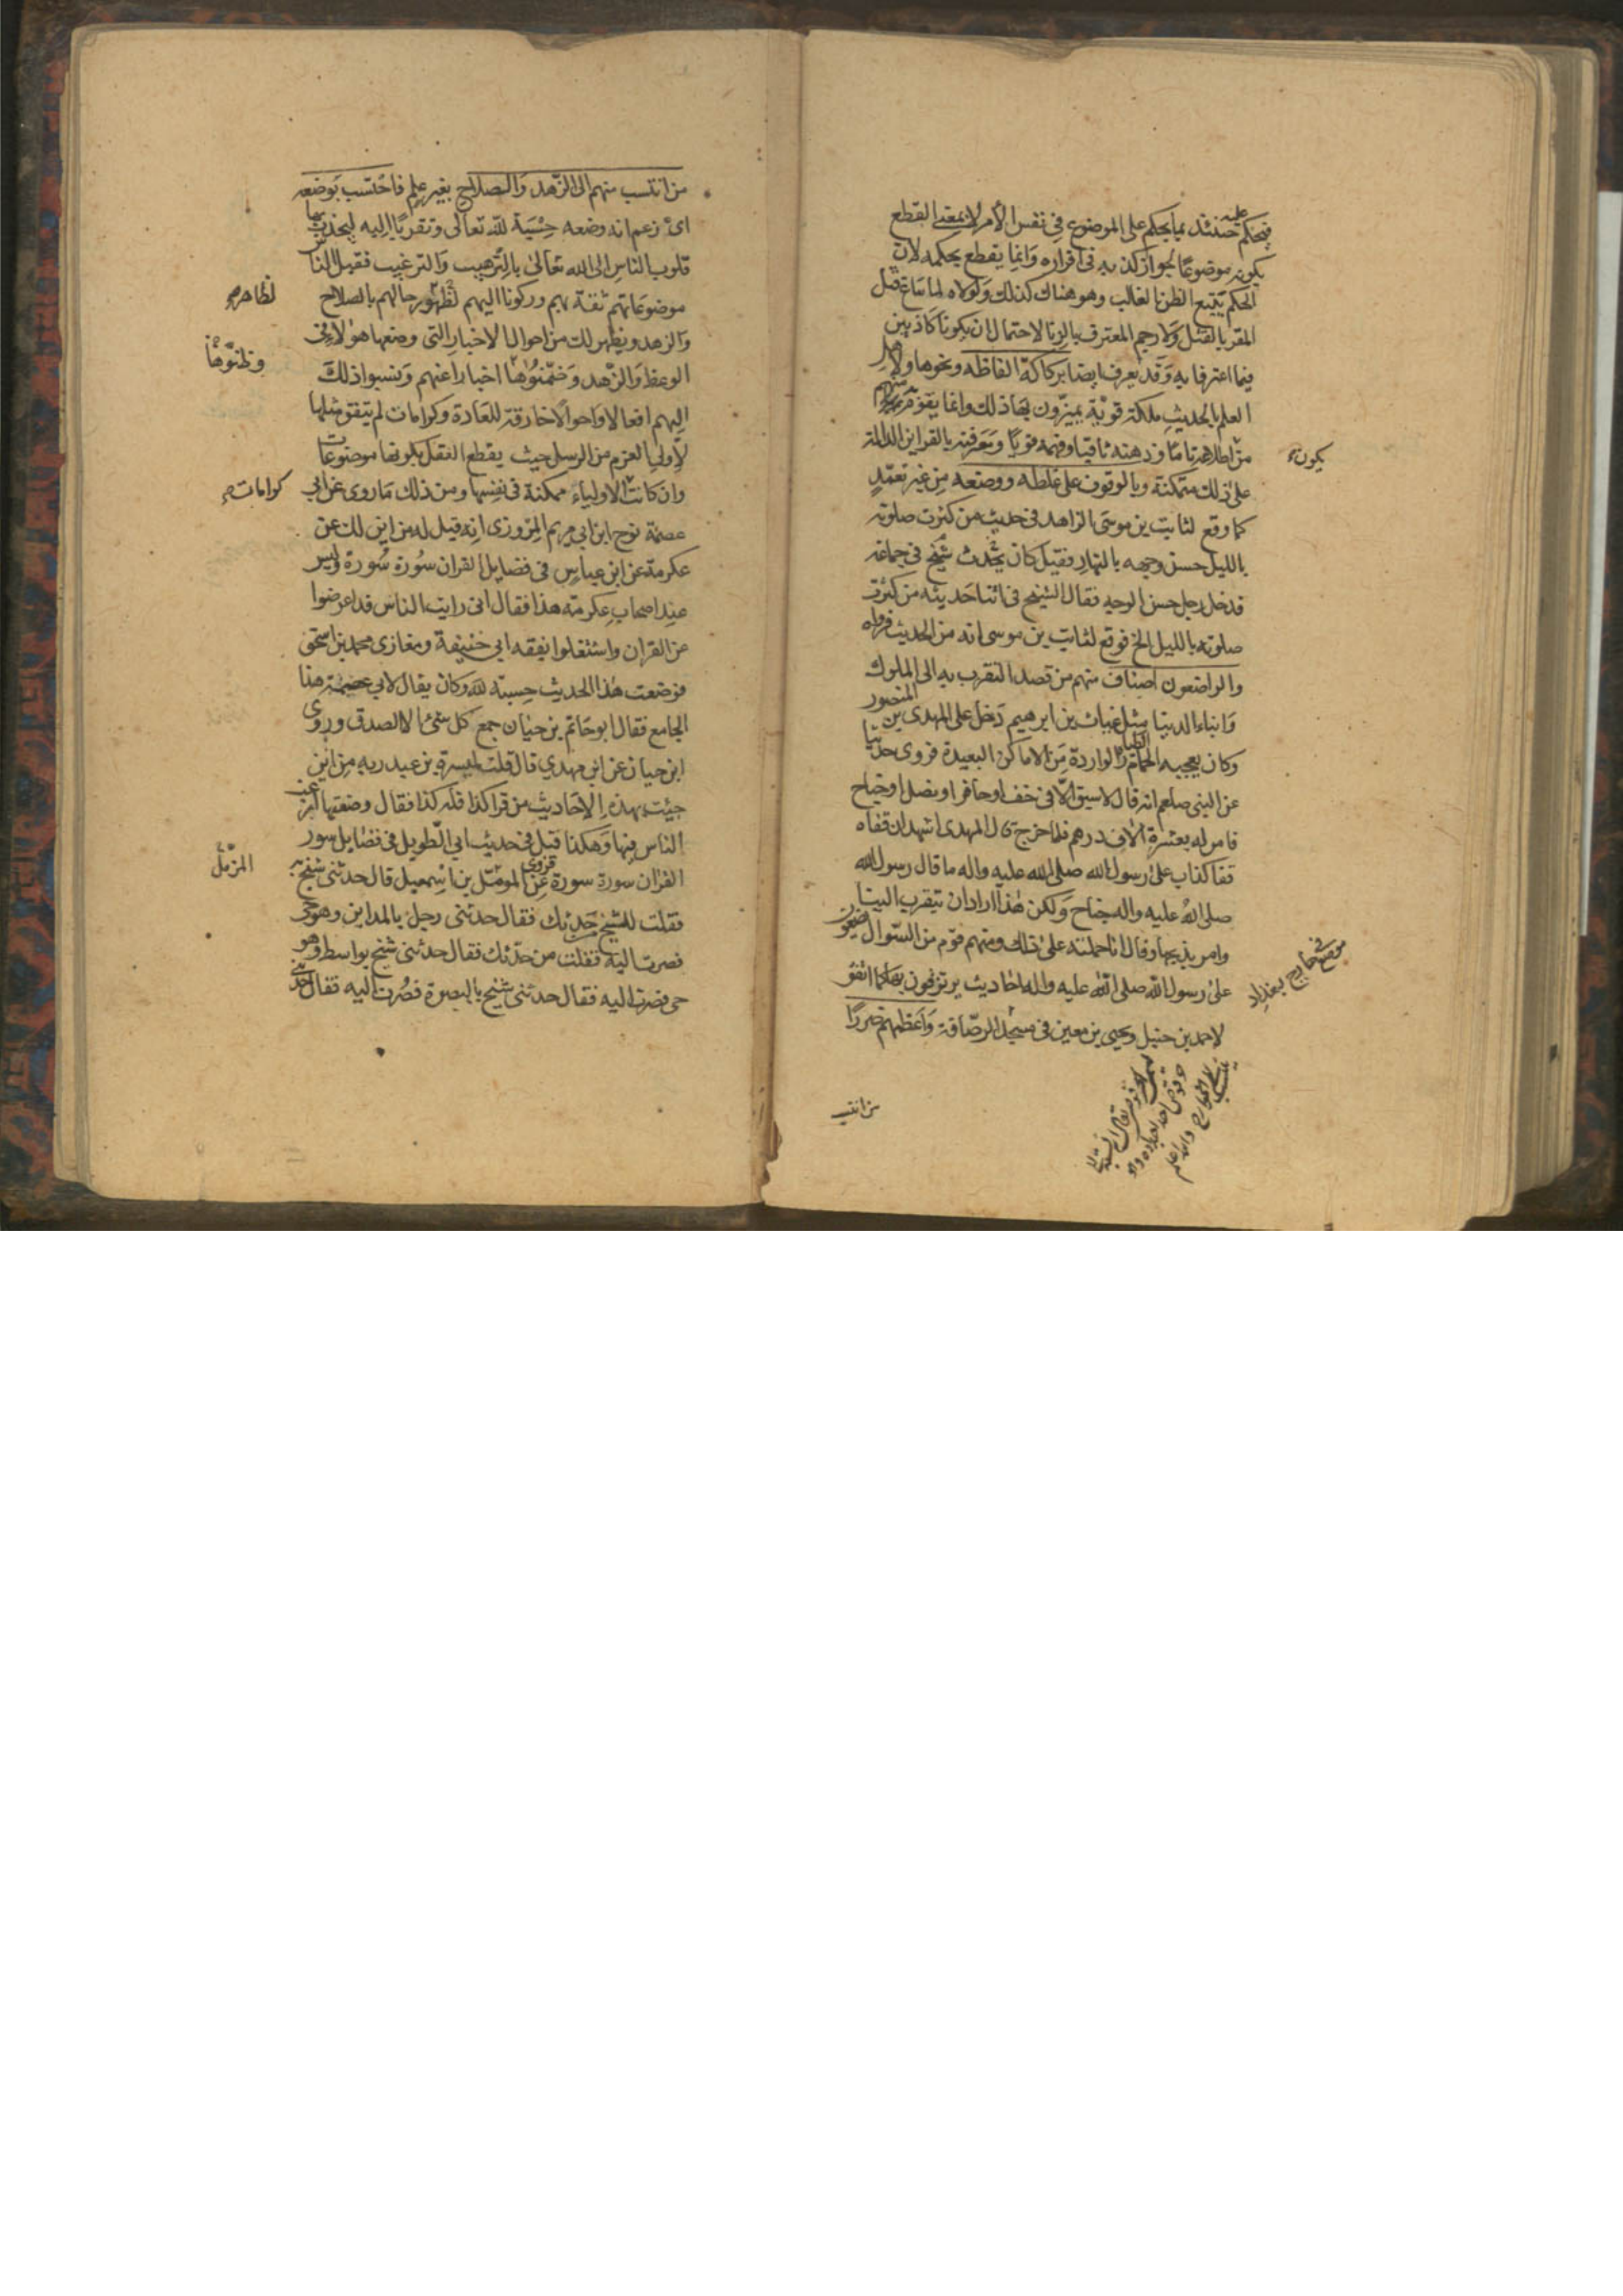 فيحكم عليه حينئذ بما يحكم على الموضوع في نفس الأمر لا بمعنى القطع
بكونه موضوعا لجواز كذبه في اقراره وانما يقطع بحكمه لان
الحكم يتبع الظن الغالب وهو هنا كذلك ولولاه لما ساغ قتل
المقر بالقتل ولا رجم المعترف بالزنا لاحتمال ان يكونا كاذبين
فيما اعترفا به وقد يعرف ايضا بركاكة الفاظه ونحوها ولاهل
العلم بالحديث ملكة قوية يميزون بها ذلك وانما يقوم به منهم
من اطلاعه تاما وذهنه ثاقبا وفهمه قويا ومعرفته بالقراين الدالة
يكون
على ذلك متمكنة وبالوقوف على غلطه ووضعه من غير تعمد
كما وقع لثابت بن موسى الزاهد في حديث من كثرت صلوته
بالليل حسن وجهه بالنهار فقيل كان يحدث شيخ في جماعة
فدخل رجل حسن الوجه فقال الشيخ في اثنا حديثه من كثرت
صلوته بالليل الخ فوقع لثابت بن موسى انه من الحديث فرواه
والواضعون اصناف منهم من قصد التقرب به الى الملوك
وابناء الدنيا مثل غياث بن ابرهيم دخل على المهدي بن المنصور
وكان يعجبه الحمام الطيارة الواردة من الاماكن البعيدة فروى حديثا
عن النبي صلعم انه قال لا سبق الا في خف او حافر او نصل او جناح
فامر له بعشرة الاف درهم فلما خرج قال المهدي اشهد ان قفاه
قفا كذاب على رسول الله صلى الله عليه واله ما قال رسول الله
صلى الله عليه واله جناح ولكن هذا اراد ان يتقرب الينا
وامر بذبحها وقال انا حملته على ذلك ومنهم قوم من السؤال يضعون
على رسول الله صلى الله عليه واله احاديث يرتزقون بها كما اتفق
موضع في خارج بغداد
لاحمد بن حنبل ويحيى بن معين في مسجد الرصافة واعظمهم ضررا
من انتسب
من انتسب منهم الى الزهد والصلاح بغير علم فاحتسب بوضعه
اى زعم انه وضعه حسبة لله تعالى وتقربا اليه ليجذب بها
قلوب الناس الى الله تعالى بالترهيب والترغيب فقبل الناس
موضوعاتهم ثقة بهم وركونا اليهم لظهور حالهم بالصلاح
لظاهر
والزهد ويظهر لك من احوال الاخبار التي وضعها هولاء في
الوعظ والزهد وضمنوها اخبارا عنهم ونسبوا ذلك
وظنوها
اليهم افعالا واحوالا خارقة للعادة وكرامات لم يتفق مثلها
لاولي العزم من الرسل حيث يقطع العقل بكونها موضوعات
وان كانت الاولياء ممكنة في نفسها ومن ذلك ما روى عن ابي
كرامات
عصمة نوح ابن ابي مريم المروزى انه قيل له من اين لك عن
عكرمة عن ابن عباس في فضايل القران سورة سورة وليس
عند اصحاب عكرمة هذا فقال انى رايت الناس قد اعرضوا
عن القران واشتغلوا بفقه ابي حنيفة ومغازى محمد بن اسحق
فوضعت هذا الحديث حسبة لله وكان يقال لابي عصمة هذا
الجامع فقال ابو حاتم بن حيان جمع كل شئ الا الصدق وروى
ابن حيان عن ابن مهدي قال قلت لميسرة بن عبد ربه من اين
جئت بهذه الاحاديث من قرا كذا فله كذا فقال وضعتها ارغب
الناس فيها وهكذا قيل في حديث ابي الطويل في فضايل سور
القران سورة سورة فروى عن المؤمل بن اسمعيل قال حدثنى شيخ به
المؤمل
فقلت للشيخ من حدثك فقال حدثنى رجل بالمداين وهو حى
فصرت اليه فقلت من حدثك فقال حدثنى شيخ بواسط وهو
حى فصرت اليه فقال حدثنى شيخ بالبصرة فصرت اليه فقال حدثنى